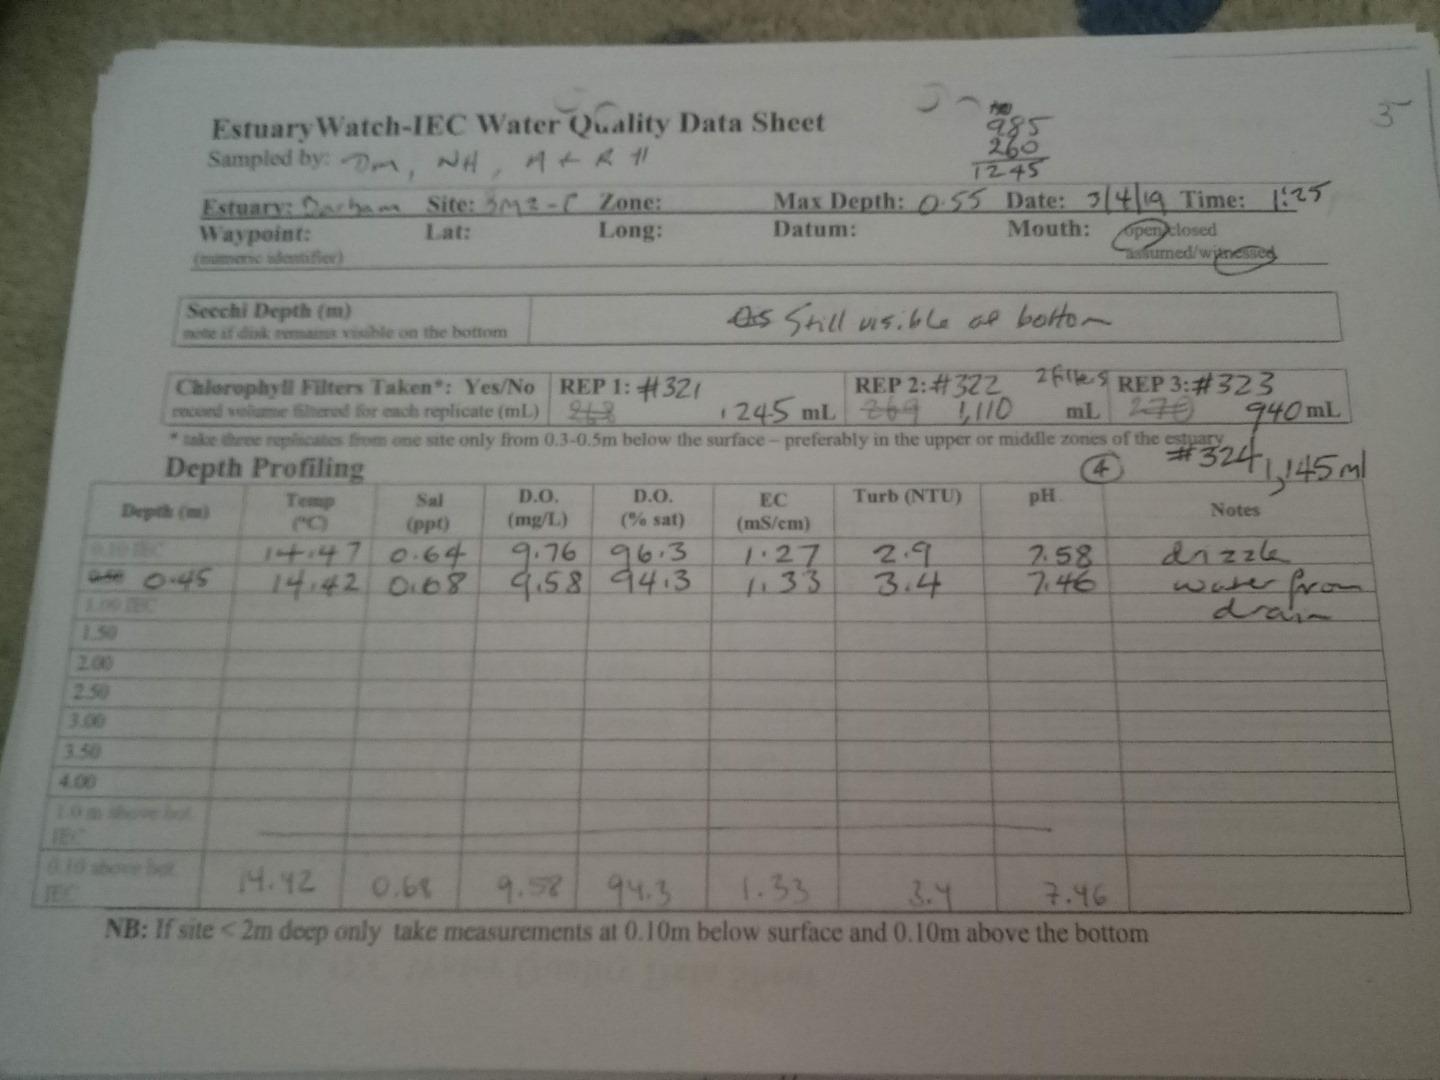 5
985
260
1245
EstuaryWatch-IEC Water Quality Data Sheet
Sampled by: Dm, NH,
Estuary: Site: Zone: Max Depth: 0.55 Date: 3/4/19 Time: 1:25
Waypoint: Lat: Long: Datum: Mouth: open/closed
(numeric identifier) assumed/witnessed
Secchi Depth (m) Still visible at bottom
note if disk remains visible on the bottom
Chlorophyll Filters Taken*: Yes/No REP 1: #321 REP 2: #322 2 filters REP 3: #323
record volume filtered for each replicate (mL) 268 1245 mL 269 1,110 mL 270 940 mL
* take three replicates from one site only from 0.3-0.5m below the surface – preferably in the upper or middle zones of the estuary
Depth Profiling 4 #324 1,145 ml
Depth (m) Temp (°C) Sal (ppt) D.O. (mg/L) D.O. (% sat) EC (mS/cm) Turb (NTU) pH Notes
0.10 IEC 14.47 0.64 9.76 96.3 1.27 2.9 7.58 drizzle
0.50 0.45 14.42 0.68 9.58 94.3 1.33 3.4 7.46 water from
1.00 IEC drain
1.50
2.00
2.50
3.00
3.50
4.00
1.0 m above bot.
IEC
0.10 above bot. 14.42 0.68 9.58 94.3 1.33 3.4 7.46
IEC
NB: If site < 2m deep only take measurements at 0.10m below surface and 0.10m above the bottom